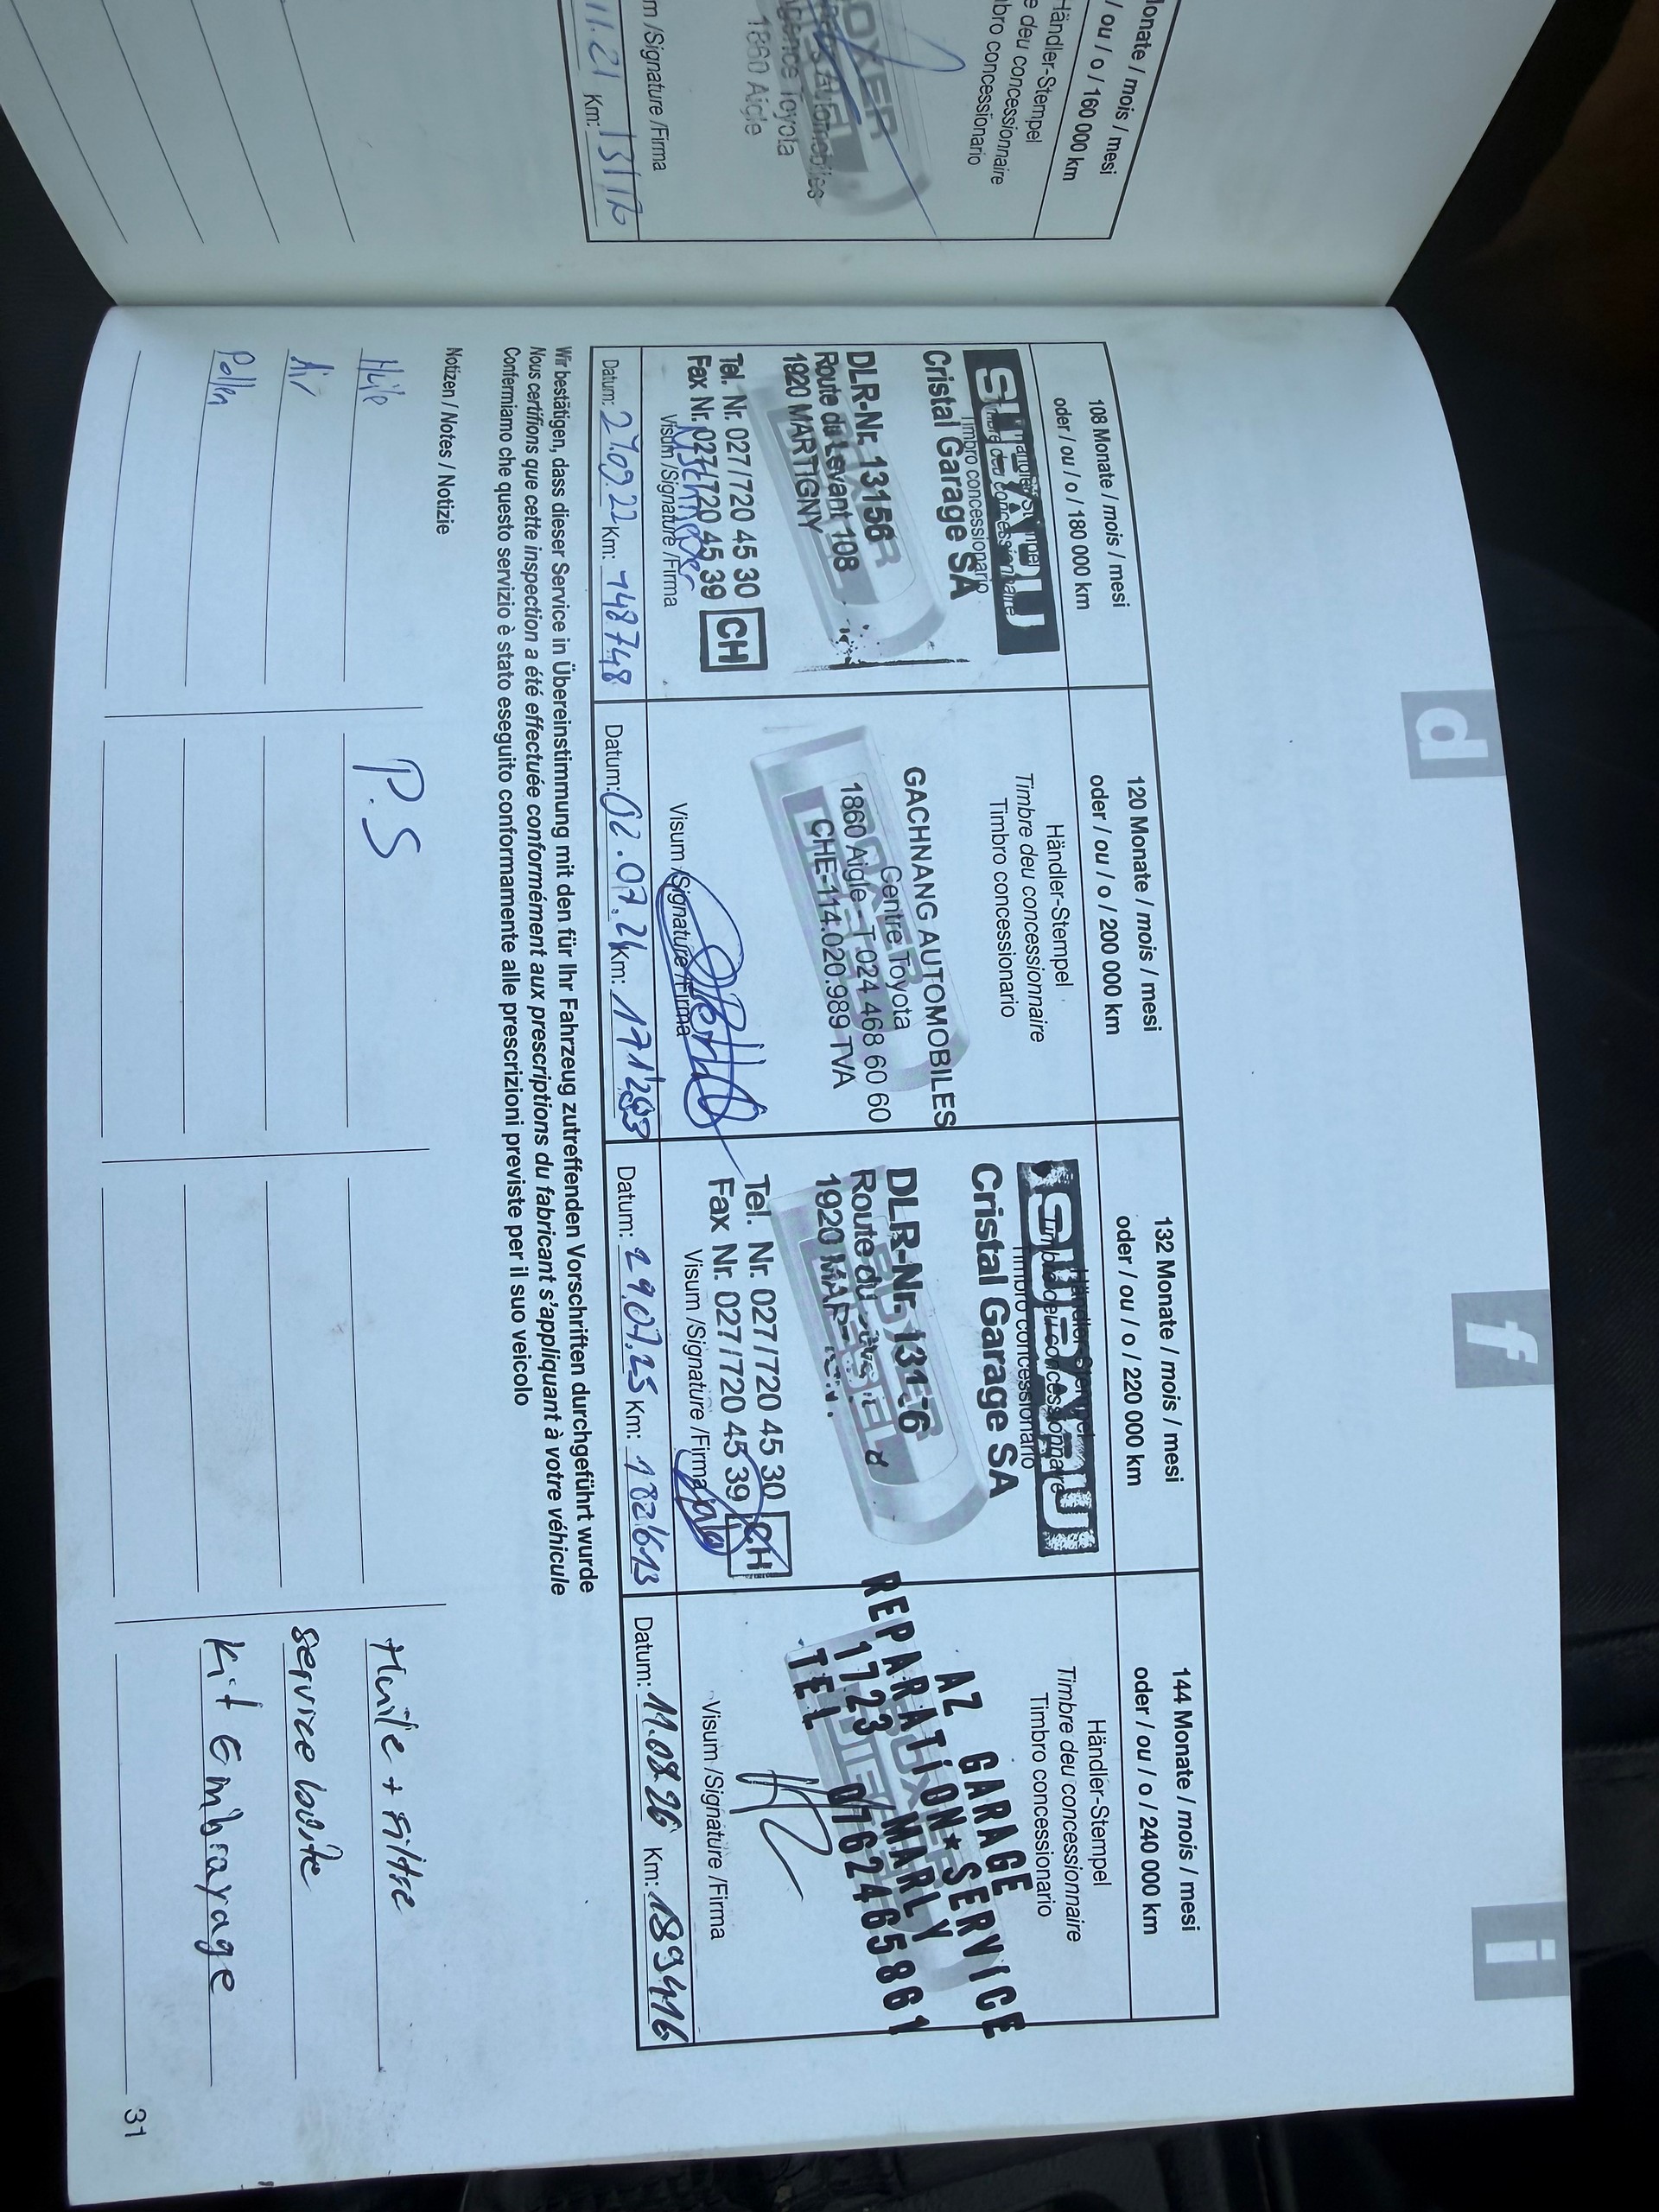 lonate / mois / mesi
/ ou / o / 160 000 km
Händler-Stempel
e deu concessionnaire
bro concessionario
OXER
Automobiles
gence Toyota
1860 Aigle
m /Signature /Firma
11.21 Km: 131
d
f
i
108 Monate / mois / mesi
oder / ou / o / 180 000 km
Händler-Stempel
Timbre deu concessionnaire
Timbro concessionario
SUBARU
Cristal Garage SA
DLR-Nr. 13156
Route du Levant 108
1920 MARTIGNY
Tel. Nr. 027/720 45 30
Fax Nr. 027/720 45 39
CH
Visum /Signature /Firma
Datum: 27.09.22 Km: 148748
120 Monate / mois / mesi
oder / ou / o / 200 000 km
Händler-Stempel
Timbre deu concessionnaire
Timbro concessionario
GACHNANG AUTOMOBILES
Centre Toyota
1860 Aigle - T 024 468 60 60
CHE-114.020.989 TVA
BOXER
DIESEL
Visum /Signature /Firma
Datum: 02.07.24 Km: 171'293
132 Monate / mois / mesi
oder / ou / o / 220 000 km
Händler-Stempel
Timbre deu concessionnaire
Timbro concessionario
SUBARU
Cristal Garage SA
DLR-Nr. 13156
Route du
1920
Tel. Nr. 027/720 45 30
Fax Nr. 027/720 45 39
CH
Visum /Signature /Firma
Datum: 29.07.25 Km: 182613
144 Monate / mois / mesi
oder / ou / o / 240 000 km
Händler-Stempel
Timbre deu concessionnaire
Timbro concessionario
AZ GARAGE
REPARATION*SERVICE
1723 MARLY
TEL 0762465861
Visum /Signature /Firma
Datum: 11.08.26 Km: 189416
Wir bestätigen, dass dieser Service in Übereinstimmung mit den für Ihr Fahrzeug zutreffenden Vorschriften durchgeführt wurde
Nous certifions que cette inspection a été effectuée conformément aux prescriptions du fabricant s'appliquant à votre véhicule
Confermiamo che questo servizio è stato eseguito conformamente alle prescrizioni previste per il suo veicolo
Notizen / Notes / Notizie
Huile
Air
Pollen
P.S
Huile + Filtre
service boite
Kit Embrayage
31